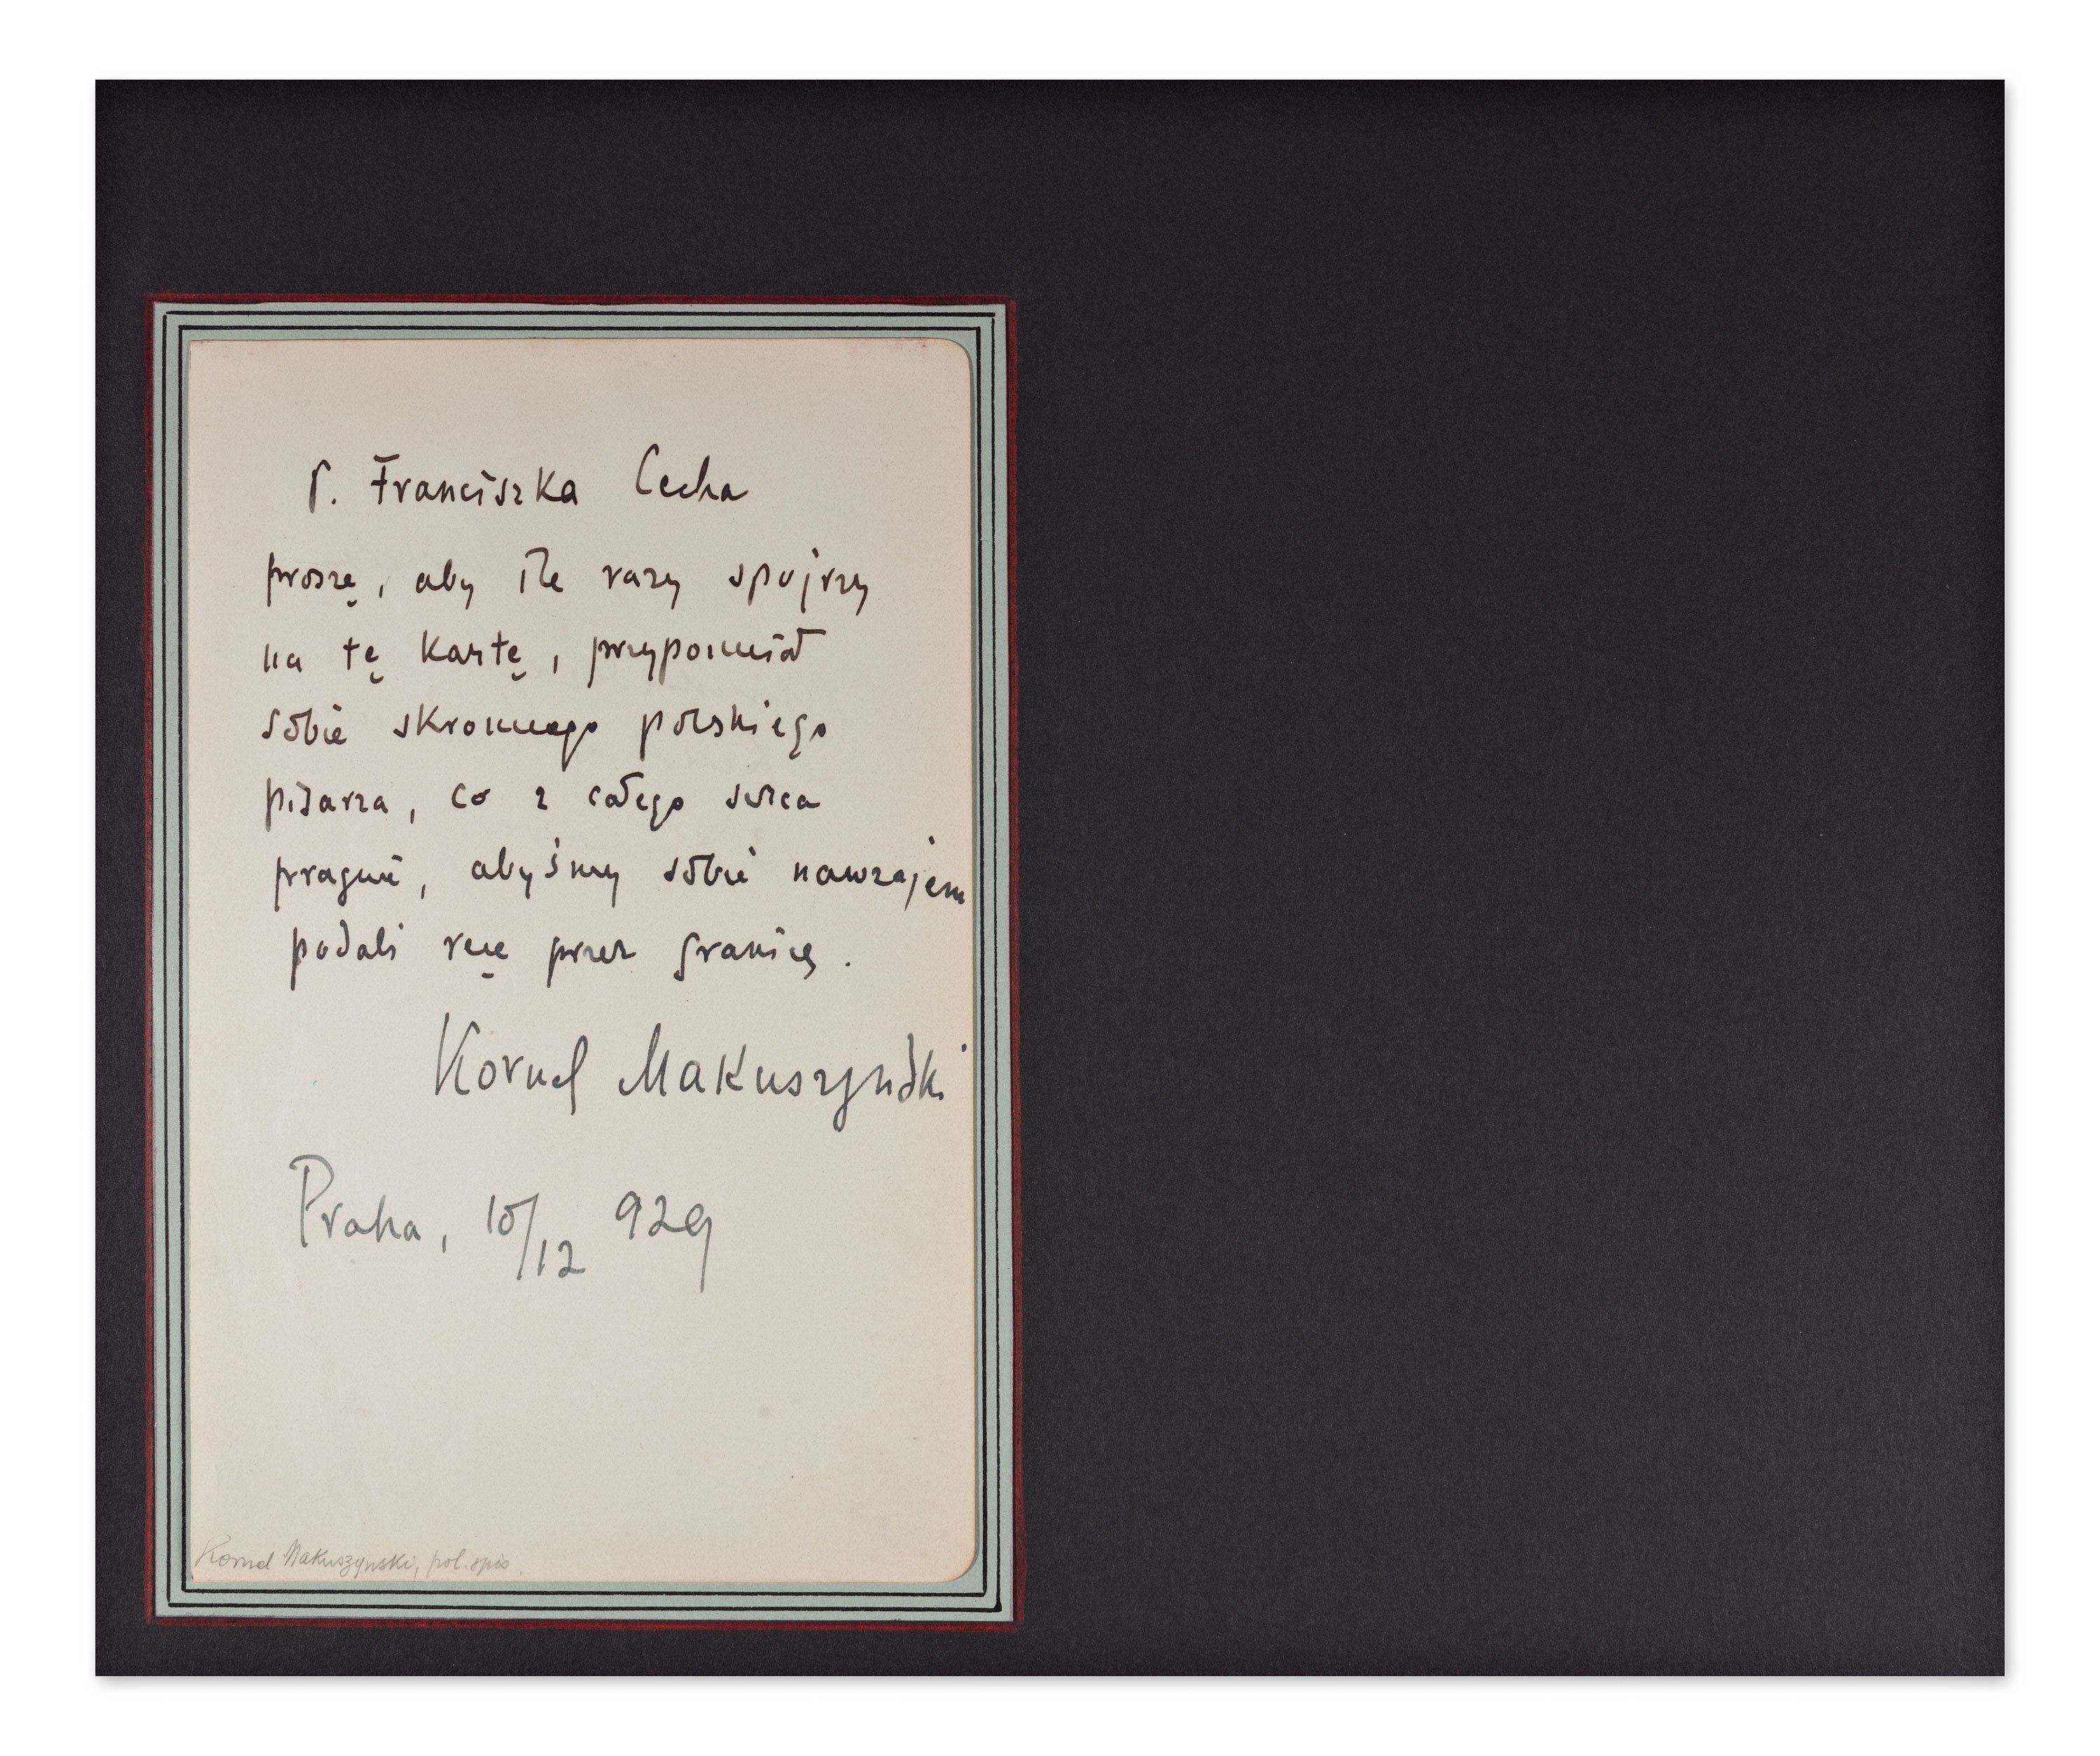 P. Franciszka Cecha
proszę, aby ile razy spojrzy
na tę kartę, przypomniał
sobie skromnego polskiego
pisarza, co z całego serca
pragnie, abyśmy sobie nawzajem
podali ręce przez granicę.
Kornel Makuszyński
Praha, 10/12 929
Kornel Makuszynski, pol. spis.